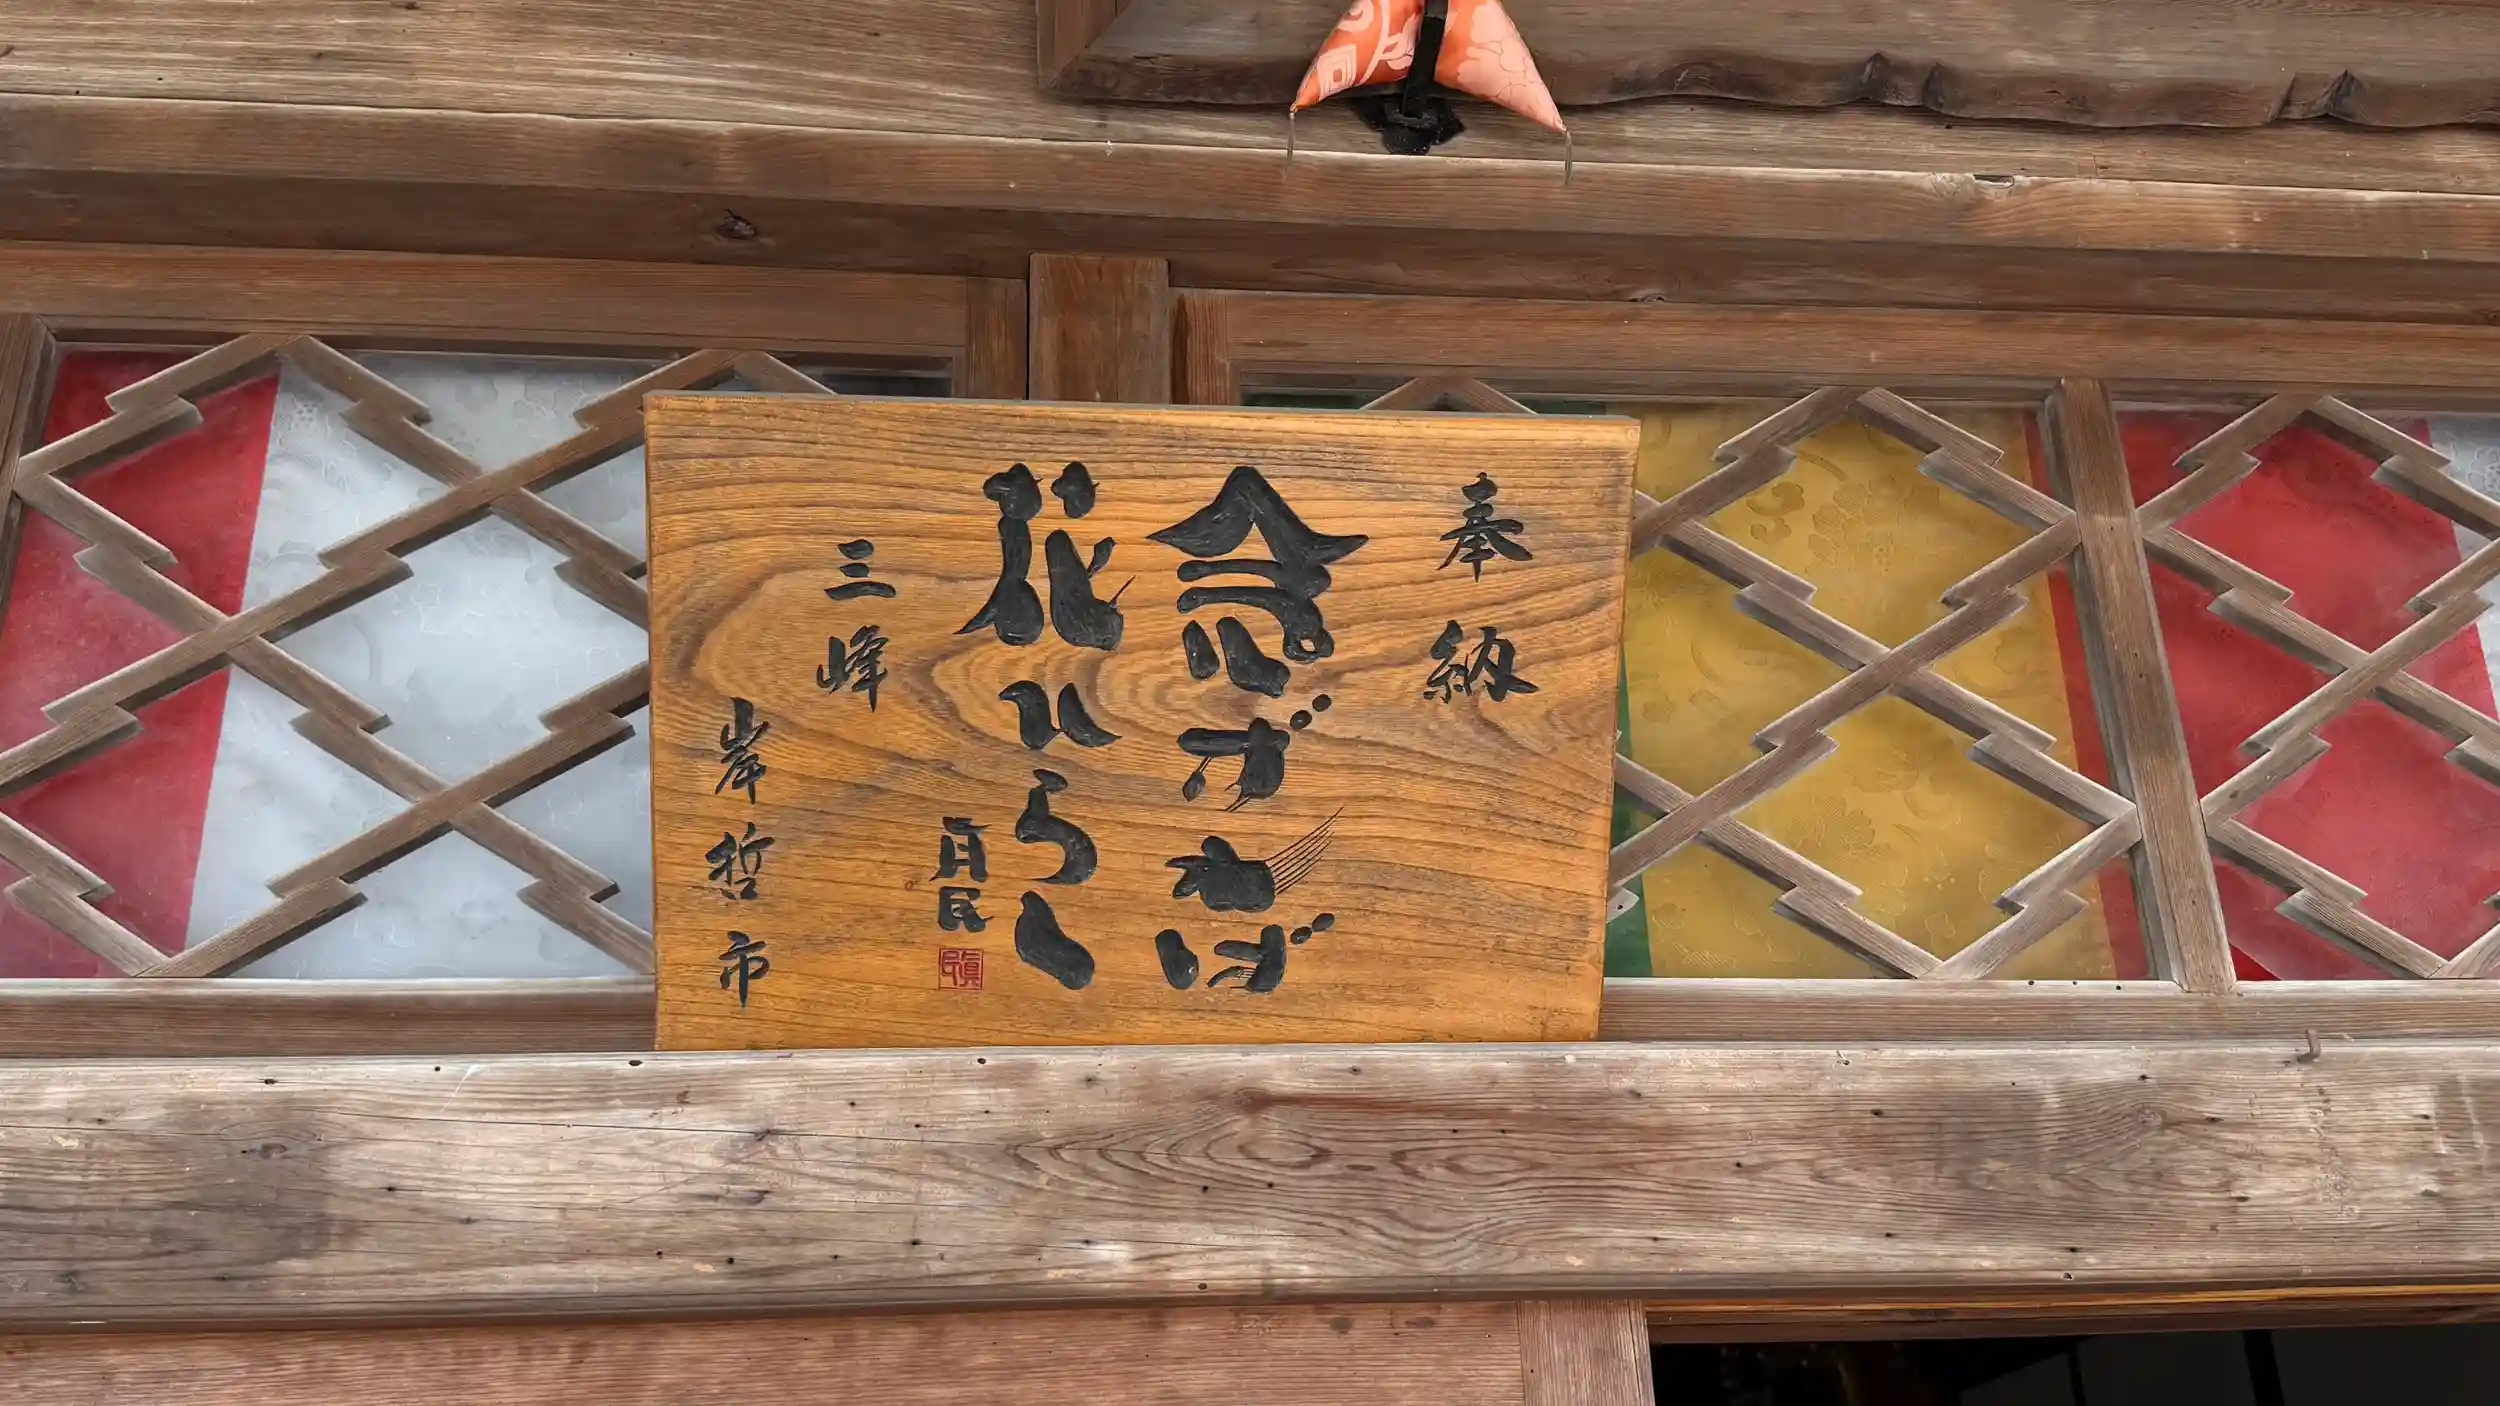 奉納
念ずれば
花ひらく
真民
三峰
岸哲市